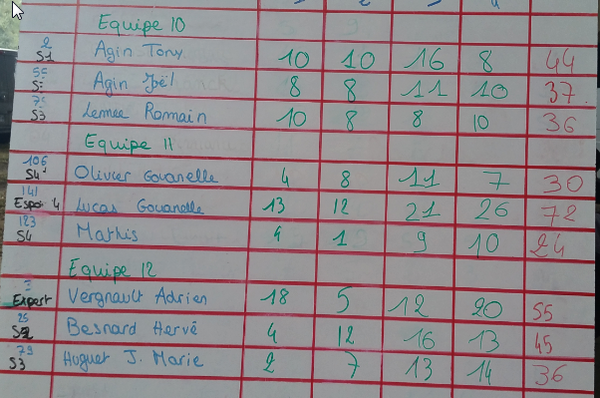 Equipe 10
2 S1 Agin Tony 10 10 16 8 44
Agin Joël 8 8 11 10 37
S3 Lemee Romain 10 8 8 10 36
Equipe 11
106 S4 Olivier Gouanelle 4 8 11 7 30
141 Espoir 4 Lucas Gouanelle 13 12 21 26 72
123 S4 Mathis 4 1 9 10 24
Equipe 12
Expert Vergnault Adrien 18 5 12 20 55
Besnard Hervé 4 12 16 13 45
79 S3 Huguet J. Marie 2 7 13 14 36